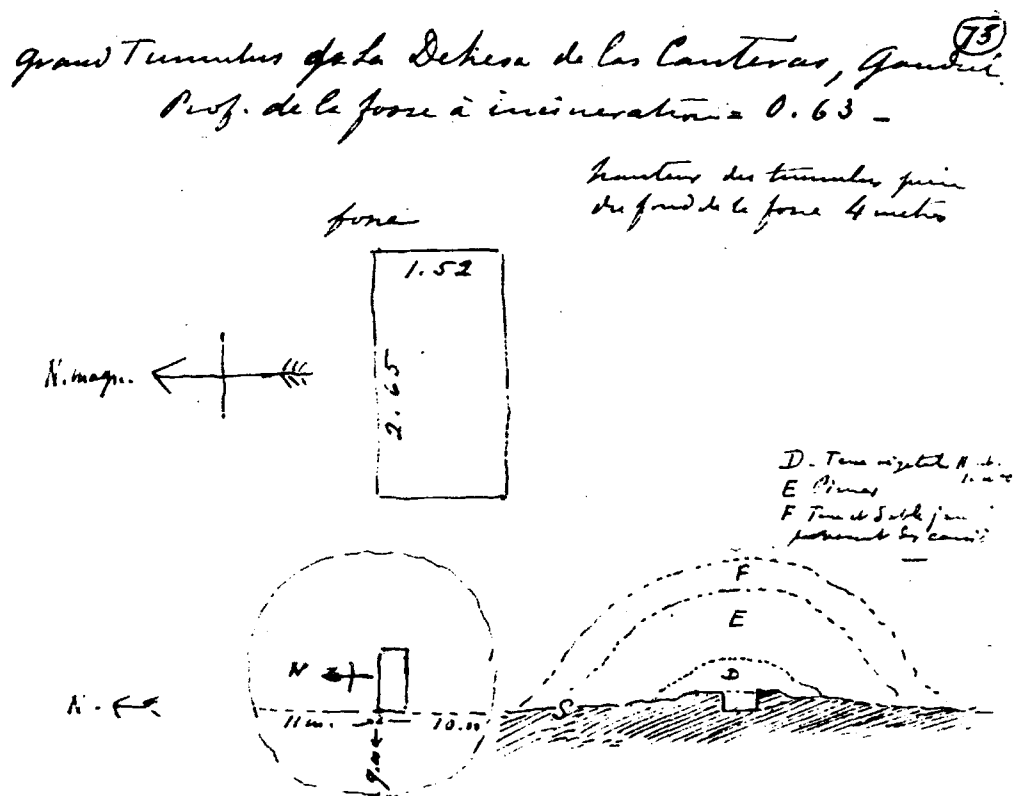 75
grand Tumulus de La Dehesa de las Canteras, Gandul.
Prof. de la fosse à incineration = 0.63 –
hauteur du tumulus
du fond de la fosse 4 metres
fosse
1.52
2.65
N. magn.
D. Terre végétale
E Pierres
F Terre et Sable
provenant
F
E
D
S
N
N.
11 m.
10.m
9.m